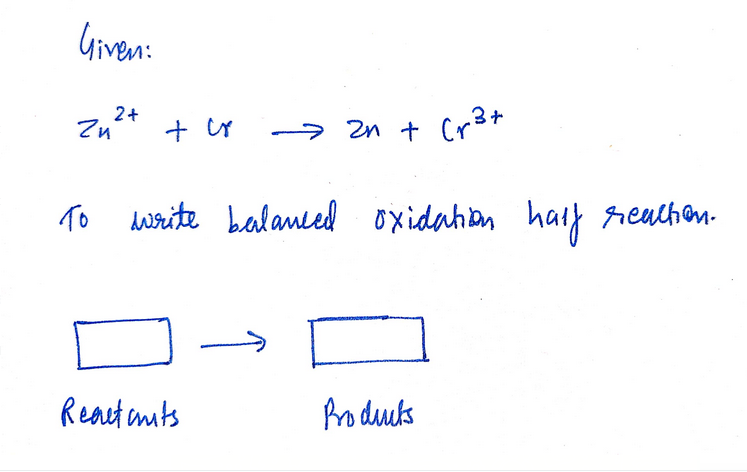 Given:
Zn²⁺ + Cr → Zn + Cr³⁺
To write balanced oxidation half reaction.
→
Reactants Products